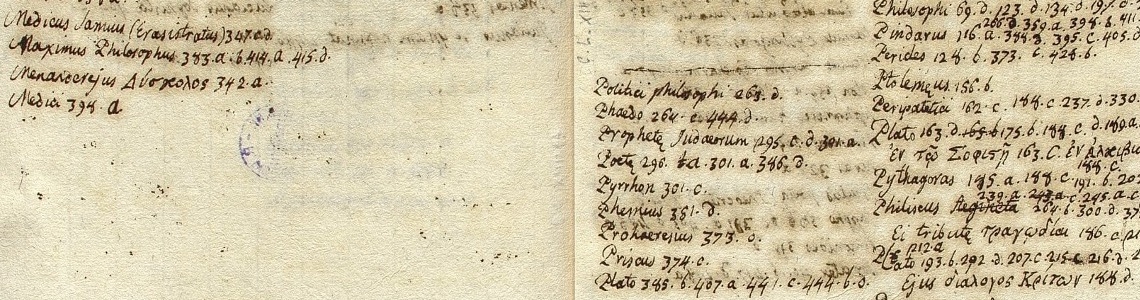 Medicus Samius (Erasistratus) 347. a.d.
Maximus Philosophus. 383. a. b. 414. a. 415. d.
Δύσκολος 342. a.
Medici 398. a
Politici philosophi 263. d.
Phaedo 264. c. 444. d.
Prophetę Judaeorum 295. c. d. 301. a.
Poetę 296. a. 301. a. 386. d.
Pyrrhon 301. c.
Phemius 351. d.
Prohaeresius 373. d.
Priscus 374. c.
Plato 385. b. 407. a. 441. c. 444. b. d.
Philosophi 69. d. 123. d. 134. d.
266. d. 359. a. 398. b.
Pindarus 116. a. 388. d. 395. c. 405. d
128. b. 373. c. 428. b.
Ptolemęus 156. b.
Peripatetici 162. c. 188. c. 237. d. 330.
Plato 163. d. 165. b 175. b. 188. c. d. 189. a.
Ἐν τῷ Σοφιστῇ 163. C. ἐν
188. c.
Pythagoras 185. a. 188. c. 191. b. 202
239. a. 243. a. c. 245. a. c
Philiscus Aegineta 264. b. 300. d.
Ei tributę τραγῳδίαι 186. a.
212. a
Plato 193. b. 202. d. 207. c. 215. c. 216. d.
Ejus διάλογος Κρίτων 188. d.